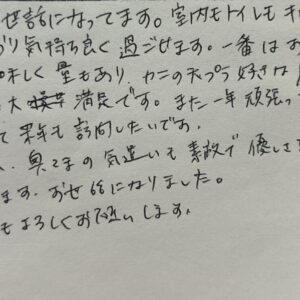 せ話になってます。室内もトイレもキ
り気持ち良く過ごせます。一番はお
味しく量もあり、カニの天プラ好きな
大満足です。また一年頑張っ
て来年も訪問したいです。
奥さまの気遣いも素敵で優しさ
ます。お世話になりました。
もよろしくお願いします。